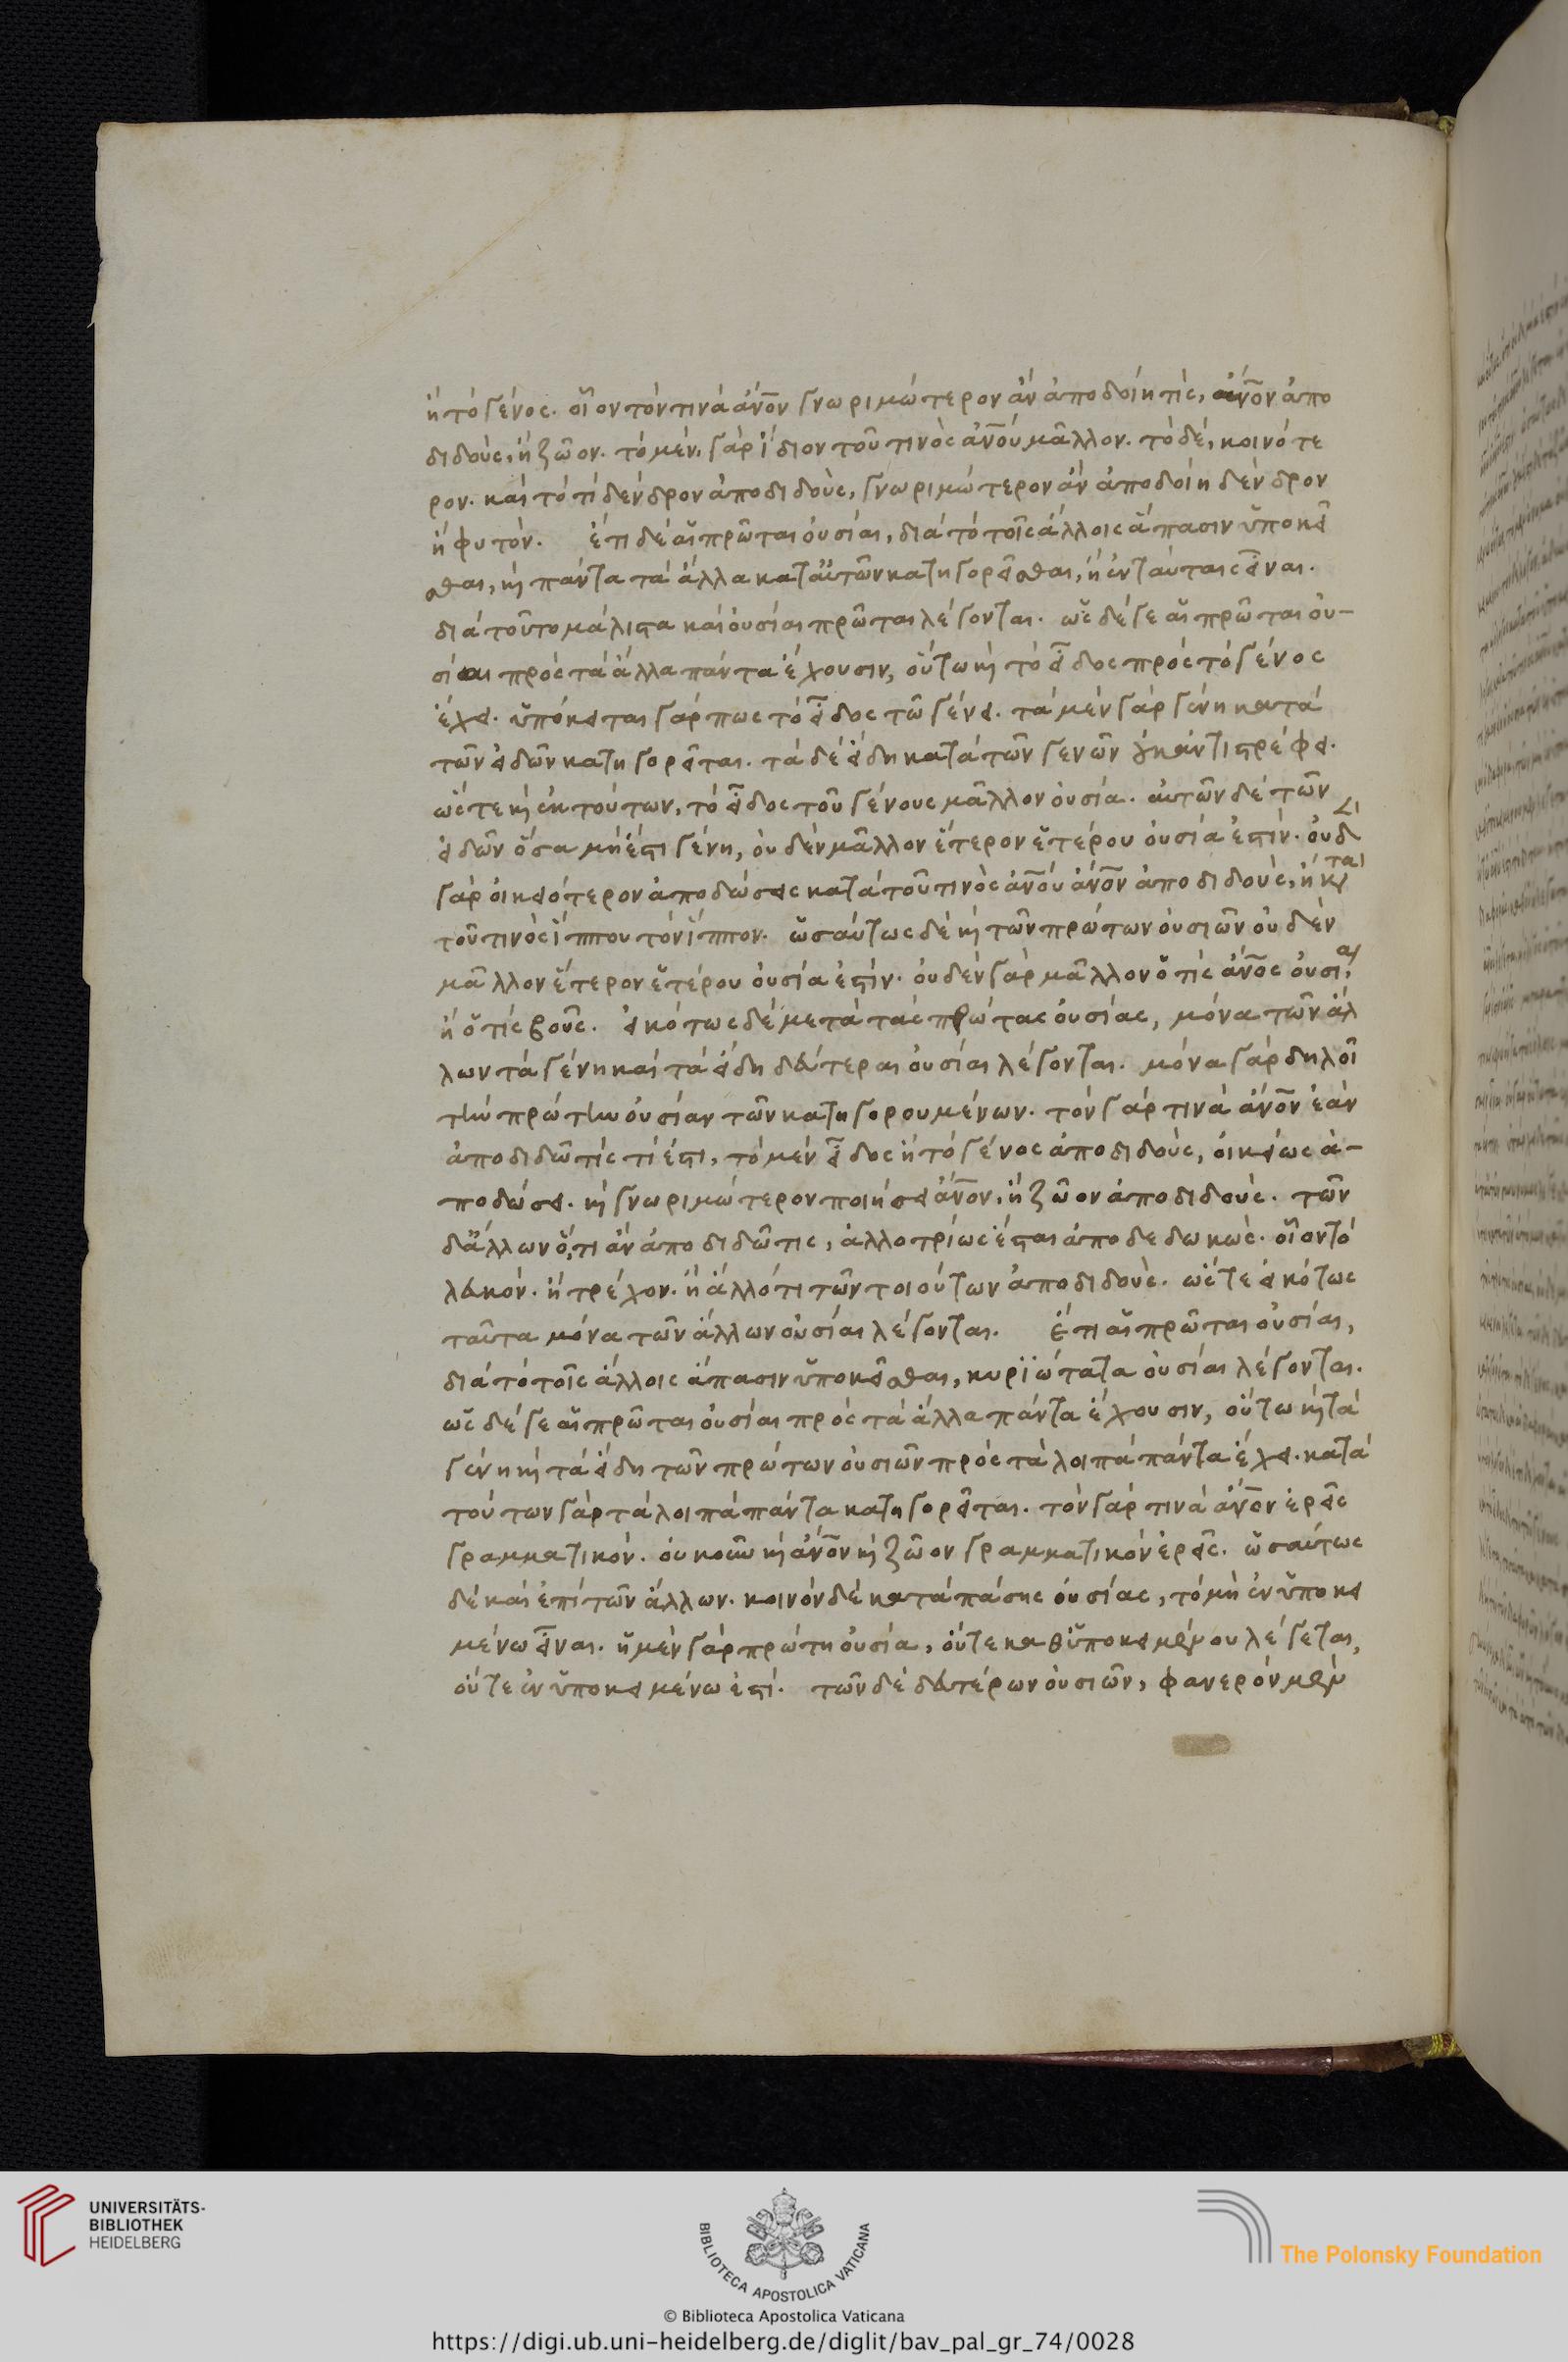 ἢ τὸ γένος. οἷον τὸν τινὰ ἄν̅ον γνωριμώτερον ἂν ἀποδοίη τὶς, ἄν̅ον ἀπο
διδοὺς, ἢ ζῶον. τὸ μὲν γὰρ ἴδιον τοῦ τινὸς ἀν̅ου μᾶλλον. τὸ δὲ, κοινότε
ρον. καὶ τὸ τὶ δένδρον ἀποδιδοὺς, γνωριμώτερον ἂν ἀποδοίη δένδρον
ἢ φυτὸν. ἔτι δὲ αἱ πρῶται οὐσίαι, διὰ τὸ τοῖς ἄλλοις ἅπασιν ὑποκεῖ
σθαι, κ̀ πάντα τὰ ἄλλα κατ' αὐτῶν κατηγορεῖσθαι, ἢ ἐν ταύταις εἶναι.
διὰ τοῦτο μάλιστα καὶ οὐσίαι πρῶται λέγονται. ὡς δέ γε αἱ πρῶται οὐ-
σίαι πρὸς τὰ ἄλλα πάντα ἔχουσιν, οὕτω κ̀ τὸ εἶδος πρὸς τὸ γένος
ἔχει. ὑπόκειται γάρ πως τὸ εἶδος τῶ γένει. τὰ μὲν γὰρ γένη κατὰ
τῶν εἰδῶν κατηγορεῖται. τὰ δὲ εἴδη κατὰ τῶν γενῶν οὐκ ἀντιστρέφει.
ὥστε κ̀ ἐκ τούτων, τὸ εἶδος τοῦ γένους μᾶλλον οὐσία. αὐτῶν δὲ τῶν
εἰδῶν ὅσα μή ἐστι γένη, οὐδὲν μᾶλλον ἕτερον ἑτέρου οὐσία ἐστὶν. οὐδὲ
γὰρ οἰκειότερον ἀποδώσεις κατὰ τοῦ τινὸς ἀν̅ου ἄν̅ον ἀποδιδοὺς, ἢ κατὰ
τοῦ τινὸς ἵππου τὸν ἵππον. ὡσαύτως δὲ κ̀ τῶν πρώτων οὐσιῶν οὐδὲν
μᾶλλον ἕτερον ἑτέρου οὐσία ἐστίν. οὐδὲν γὰρ μᾶλλον ὅ τὶς ἄν̅ος οὐσία,
ἢ ὅ τὶς βοῦς. εἰκότως δὲ μετὰ τὰς πρώτας οὐσίας, μόνα τῶν ἄλ
λων τὰ γένη καὶ τὰ εἴδη δεύτεραι οὐσίαι λέγονται. μόνα γὰρ δηλοῖ
τὴν πρώτην οὐσίαν τῶν κατηγορουμένων. τὸν γάρ τινὰ ἄν̅ον ἐὰν
ἀποδιδῶ τὶς τί ἐστι, τὸ μὲν εἶδος ἢ τὸ γένος ἀποδιδοὺς, οἰκείως ἀ-
ποδώσει. κ̀ γνωριμώτερον ποιήσει ἄν̅ον, ἢ ζῶον ἀποδιδοὺς. τῶν
δ' ἄλλων ὅ,τι ἂν ἀποδιδῶ τις, ἀλλοτρίως ἔσται ἀποδεδωκὼς. οἷον τὸ
λευκὸν. ἢ τρέχον. ἢ ἄλλό τι τῶν τοιούτων ἀποδιδοὺς. ὥστε εἰκότως
ταῦτα μόνα τῶν ἄλλων οὐσίαι λέγονται. ἔτι αἱ πρῶται οὐσίαι,
διὰ τὸ τοῖς ἄλλοις ἅπασιν ὑποκεῖσθαι, κυριώτατα οὐσίαι λέγονται.
ὡς δέ γε αἱ πρῶται οὐσίαι πρὸς τὰ ἄλλα πάντα ἔχουσιν, οὕτω κ̀ τὰ
γένη κ̀ τὰ εἴδη τῶν πρώτων οὐσιῶν πρὸς τὰ λοιπὰ πάντα ἔχει. κατὰ
τούτων γὰρ τὰ λοιπὰ πάντα κατηγορεῖται. τὸν γάρ τινὰ ἄν̅ον ἐρεῖς
γραμματικόν. οὐκοῦν κ̀ ἄν̅ον κ̀ ζῶον γραμματικὸν ἐρεῖς. ὡσαύτως
δὲ καὶ ἐπὶ τῶν ἄλλων. κοινὸν δὲ κατὰ πάσης οὐσίας, τὸ μὴ ἐν ὑποκει
μένω εἶναι. ἡ μὲν γὰρ πρώτη οὐσία, οὔτε καθ' ὑποκειμένου λέγεται,
οὔτε ἐν ὑποκειμένω ἐστί. τῶν δὲ δευτέρων οὐσιῶν, φανερὸν μὲν
UNIVERSITÄTS-
BIBLIOTHEK
HEIDELBERG
BIBLIOTECA APOSTOLICA VATICANA
The Polonsky Foundation
© Biblioteca Apostolica Vaticana
https://digi.ub.uni-heidelberg.de/diglit/bav_pal_gr_74/0028